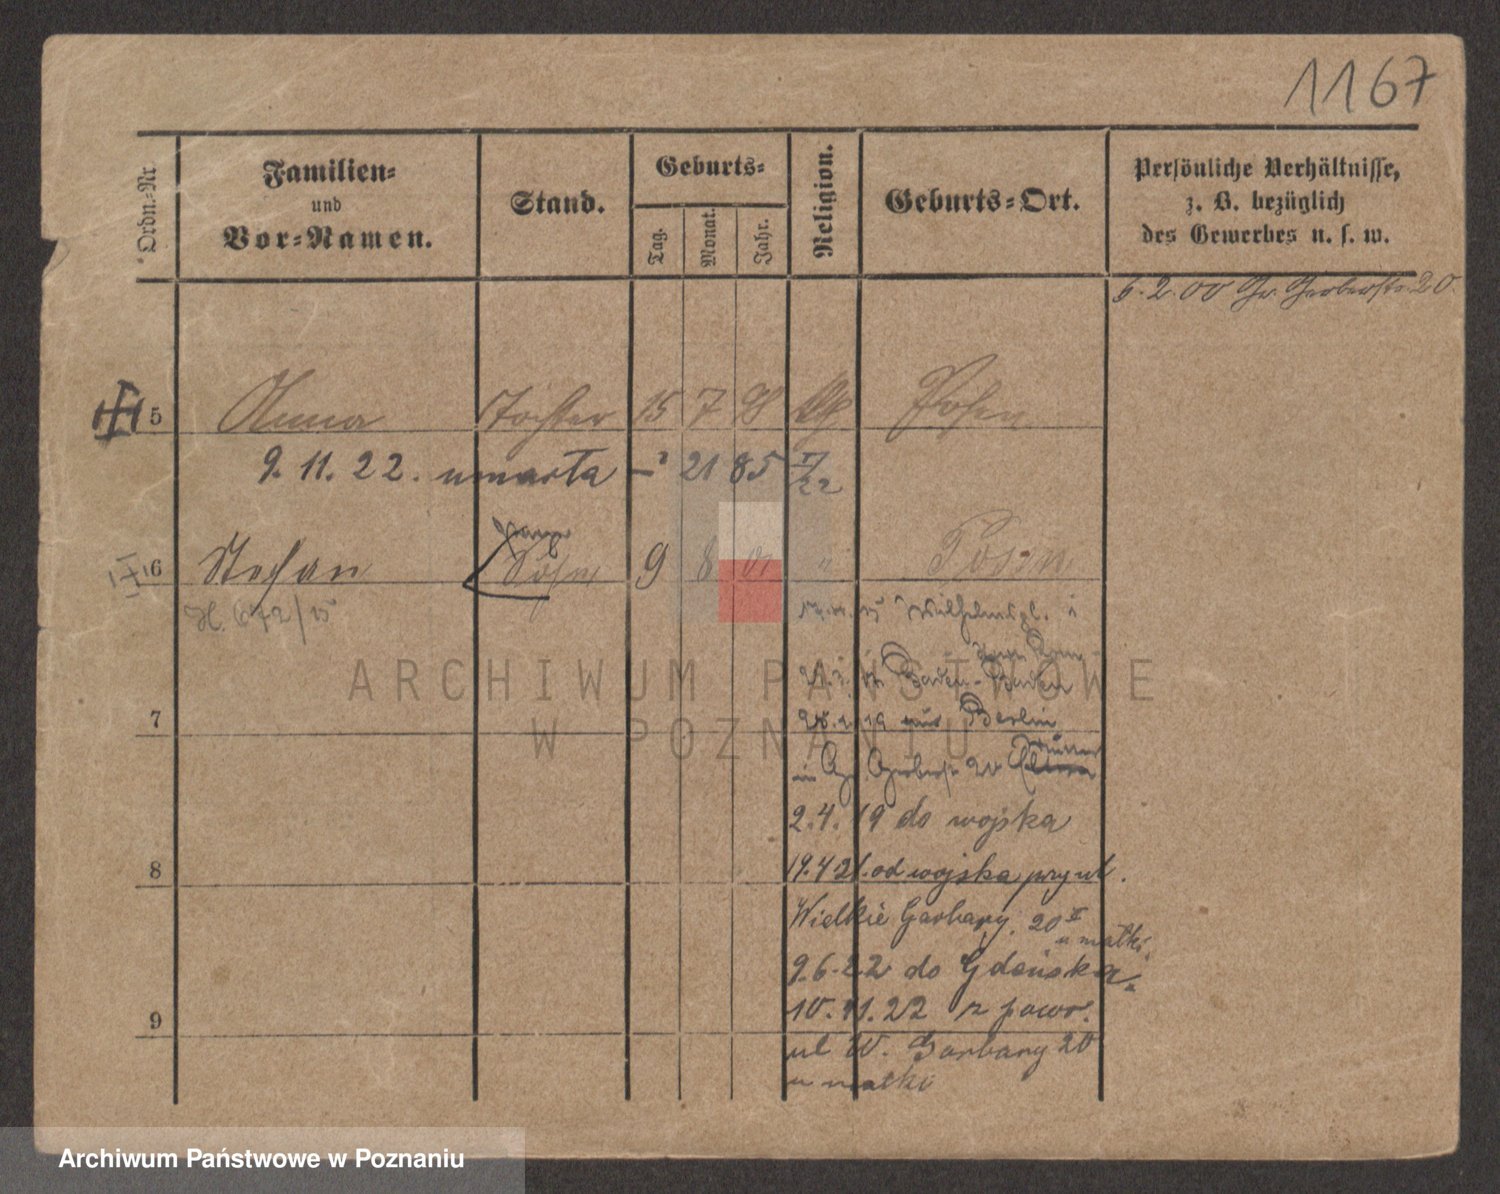 1167
Ordn.-Nr.
Familien-
und
Vor-Namen.
Stand.
Geburts-
Tag.
Monat.
Jahr.
Religion.
Geburts-Ort.
Persönliche Verhältnisse,
z. B. bezüglich
des Gewerbes u. s. w.
6.2.00 Gr. Gerberstr. 20.
5 Anna Tochter 15 7 98 Posen
9. 11. 22. umarła 21 85
6 Stefan Sohn 9 8 01 " Posen
Wilhelmspl.
Baden-Baden
7
19 aus Berlin
in Gr. Gerberstr 20 Mutter
2.4.19 do wojska
8
19.4 21. od wojska przy ul.
Wielkie Garbary. 20 II
u matki.
9.6.22 do Gdańska.
10.11.22 z powr.
9
ul W. Garbary 20
u matki
ARCHIWUM PAŃSTWOWE
W POZNANIU
Archiwum Państwowe w Poznaniu